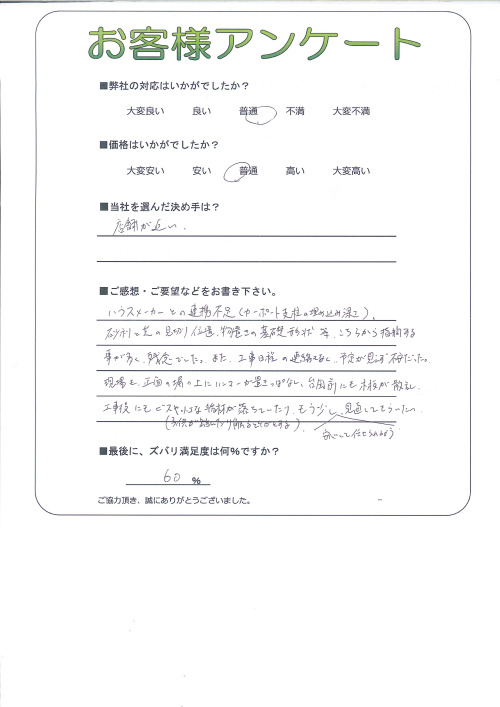 お客様アンケート
■弊社の対応はいかがでしたか？
大変良い 良い 普通 不満 大変不満
■価格はいかがでしたか？
大変安い 安い 普通 高い 大変高い
■当社を選んだ決め手は？
店舗が近い.
■ご感想・ご要望などをお書き下さい。
ハウスメーカーとの連携不足(カーポート支柱の埋め込み深さ)、
砂利と芝の見切り位置、物置きの基礎形状 等、こちらから指摘する
事が多く、残念でした。また、工事日程の連絡もなく、予定が見えず不安だった。
現場も、正面の塀の上にハンマーが置きっぱなし、台風前にも木板が散乱し、
工事後にもビスや 端材が落ちていたり、もう少し、見直してもらいたい。
(子供が
安心して任せられるよう)
■最後に、ズバリ満足度は何%ですか？
60 %
ご協力頂き、誠にありがとうございました。